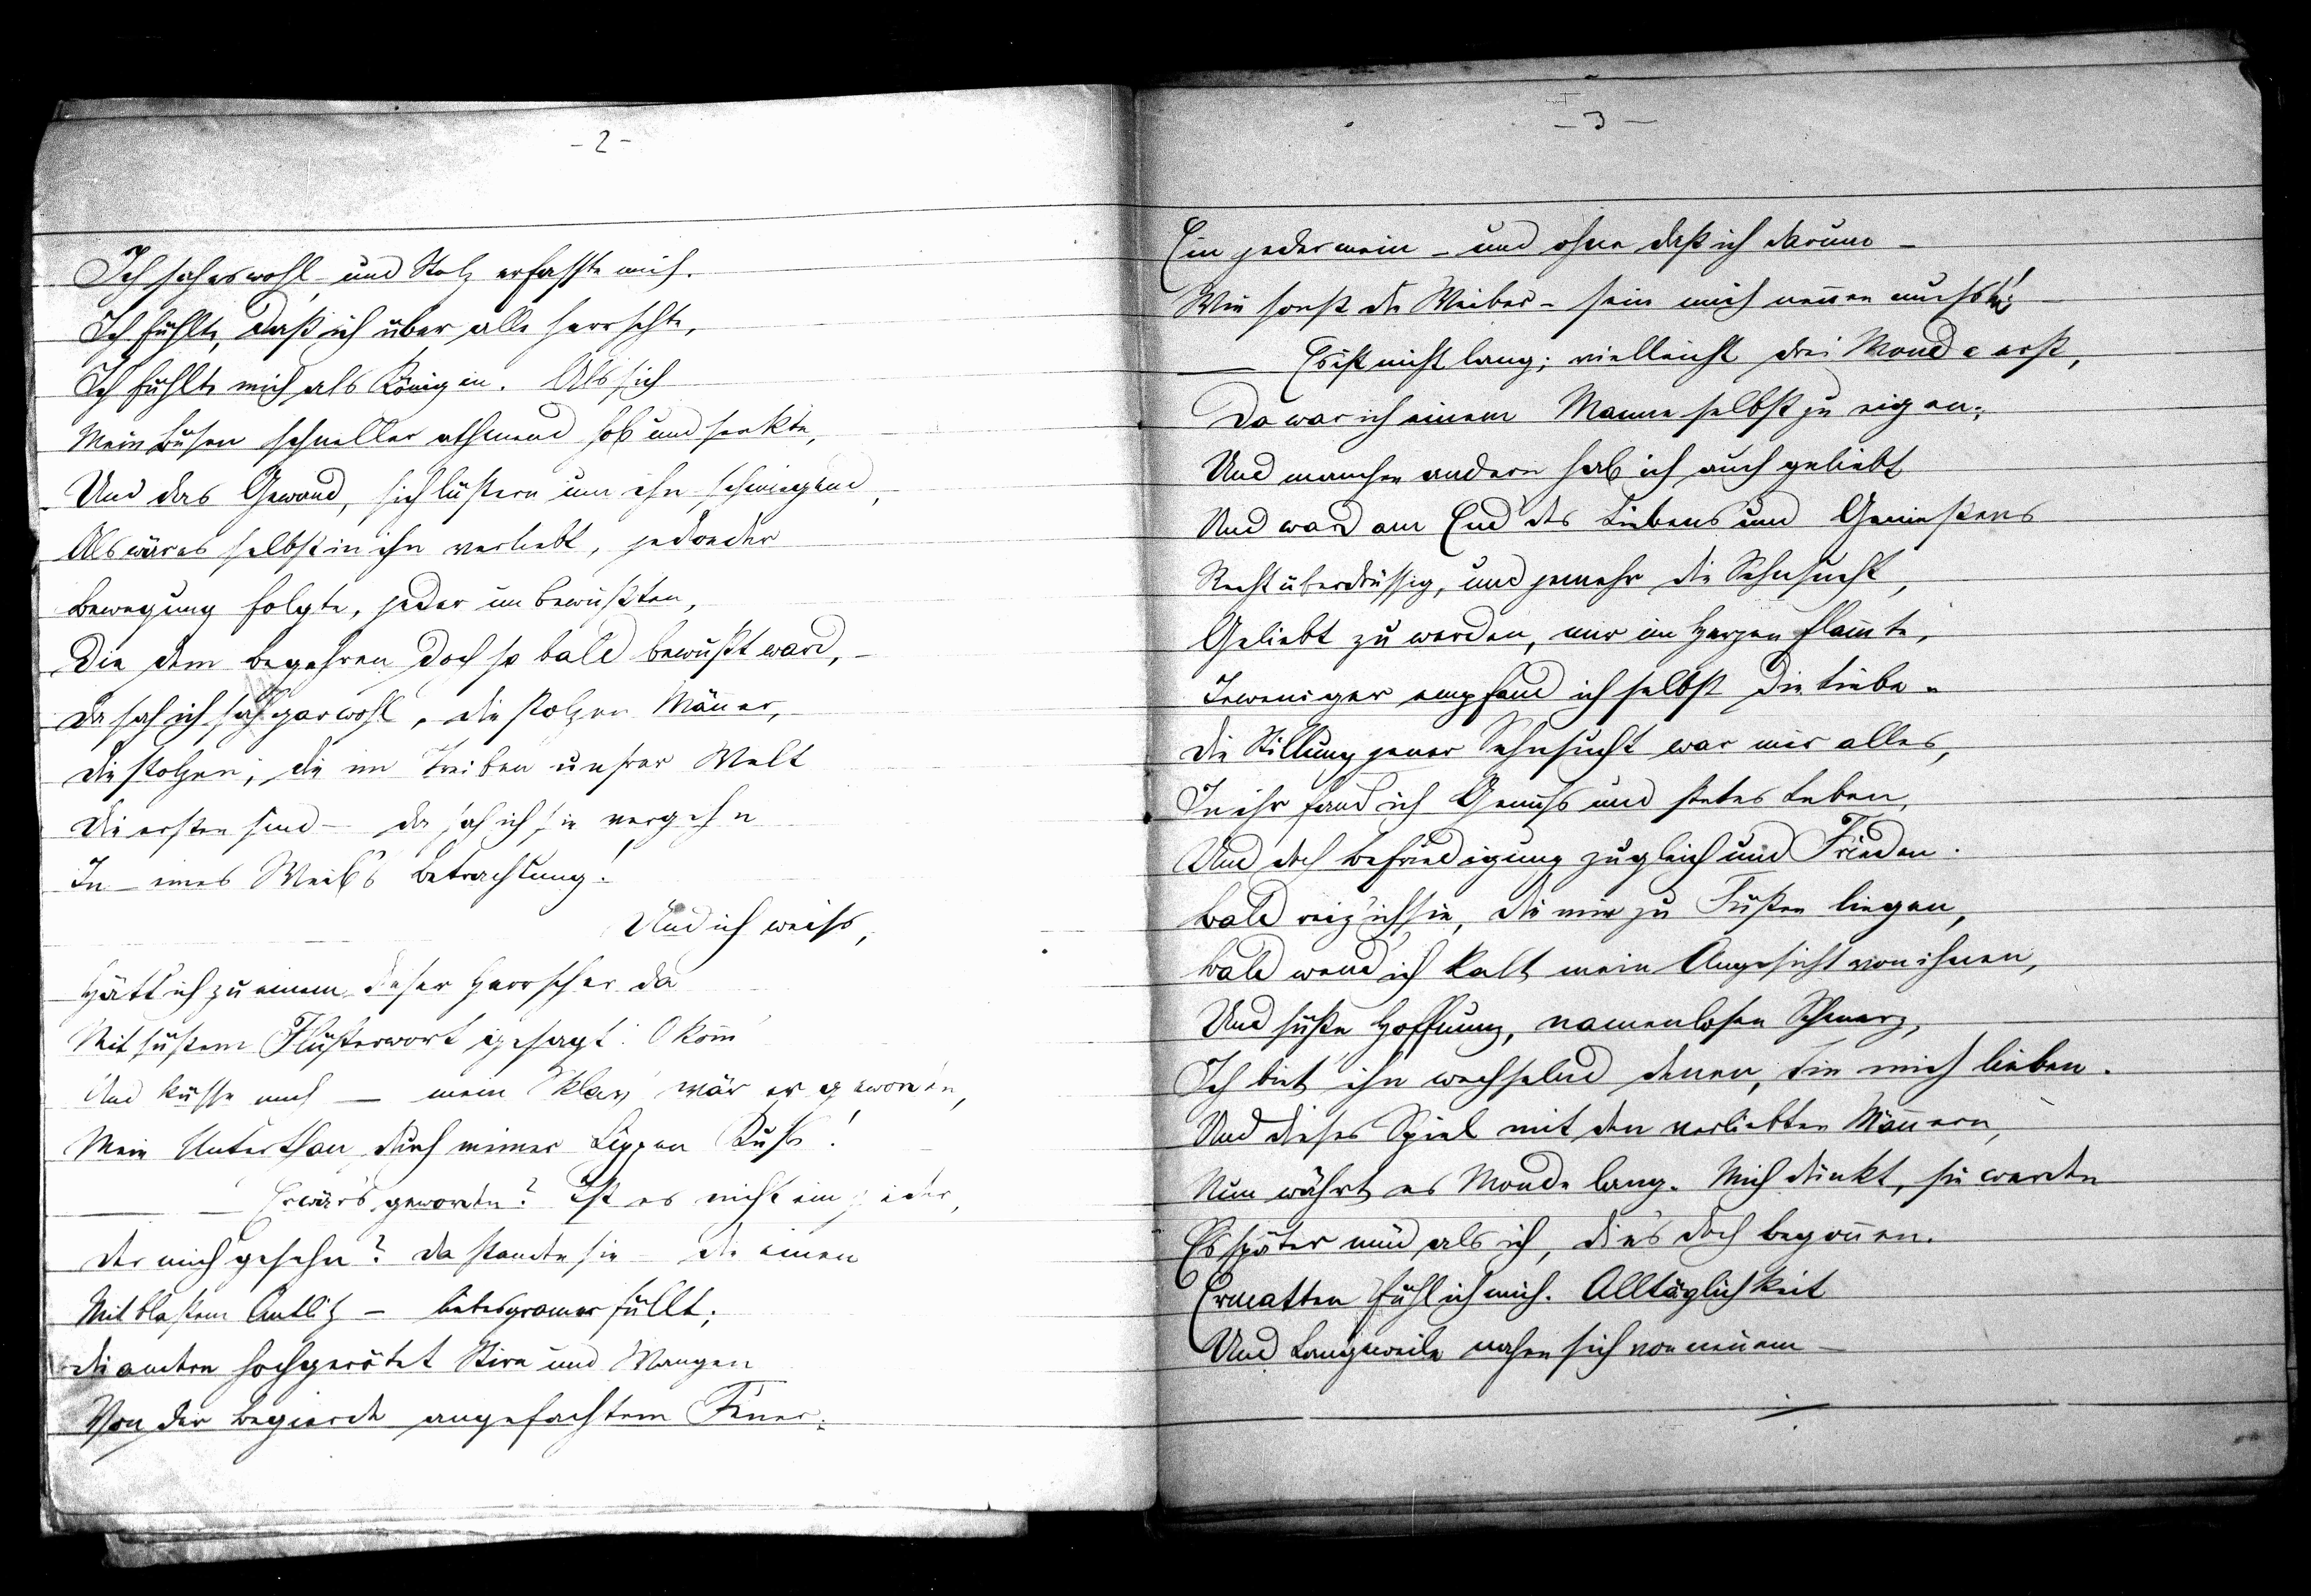 - 2 -
Ich sah es wohl - und Stolz erfasste mich.
Ich fühlte, daß ich über alle herrschte,
Ich fühlte mich als Königin. Als sich
Mein Busen schneller athmend hob und senkte,
Und das Gewand, sich lüstern um ihn schmiegend,
Als wär es selbst in ihn verliebt, jedweder
Bewegung folgte, jeder unbewußten,
Die dem Begehren doch so bald bewußt ward, -
Da sah ich, sah gar wohl, die stolzen Männer,
Die stolzen; die im Treiben unsrer Welt
Die ersten sind - da sah ich sie vergehn
In - eines Weib's Betrachtung!
Und ich weiss,
Hätt ich zu einem dieser Herrscher da
Mit süßem Flüsterwort gesagt: O komm
Und küsse mich — mein Sklav' wär er geworden,
Mein Unterthan durch meiner Lippen Kuß!
— — Er wär's geworden? Ist es nicht ein jeder,
Der mich gesehn? Da standen sie - die einen
Mit blaßem Antlitz - liebesgramerfüllt;
Die andren hochgerötet Stirn und Wangen
Von der Begierde angefachtem Feuer;
- 3 -
Ein jeder mein - und ohne daß ich darum -
Wie sonst die Weiber - sein mich nennen musste!
— Es ist nicht lang; vielleicht drei Monde erst,
Da war ich einem Manne selbst zu eigen;
Und manchen andern hab ich auch geliebt
Und ward am End' des Liebens und Genießens
Recht überdrüssig, und jemehr die Sehnsucht,
Geliebt zu werden, mir im Herzen flammte,
Jeweniger empfand ich selbst die Liebe -
Die Stillung jener Sehnsucht war mir alles,
In ihr fand ich Genuß und stetes Leben,
Und doch Befriedigung zugleich und Frieden.
Bald reiz' ich sie, die mir zu Füßen liegen,
Bald wend' ich kalt mein Angesicht von ihnen,
Und süße Hoffnung, namenlosen Schmerz,
Ich biet' ihn wechselnd denen, die mich lieben.
Und dieses Spiel mit den verliebten Männern,
Nun währt es Monde lang. Mich dünkt, sie werden
Es später müd als ich, die's doch begonnen.
Ermatten fühl ich mich. Alltäglichkeit
Und Langweile nahen sich von neuem -